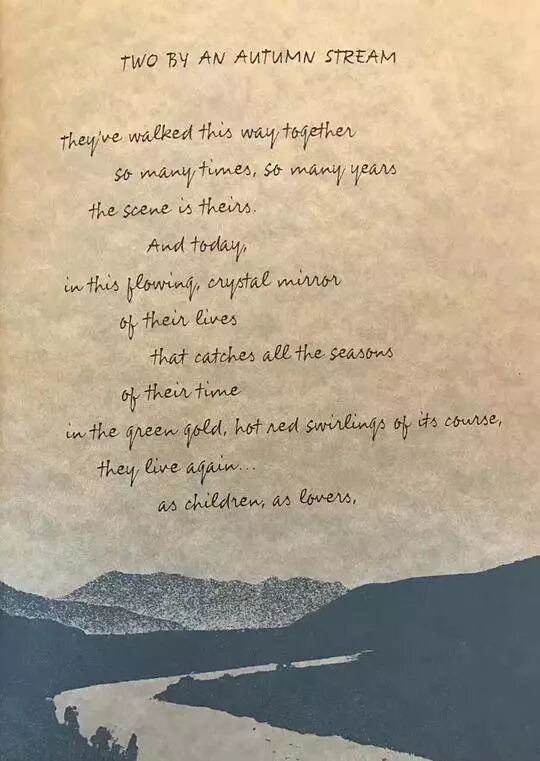 TWO BY AN AUTUMN STREAM
They've walked this way together
so many times, so many years
the scene is theirs.
And today,
in this flowing, crystal mirror
of their lives
that catches all the seasons
of their time
in the green gold, hot red swirlings of its course,
they live again...
as children, as lovers,